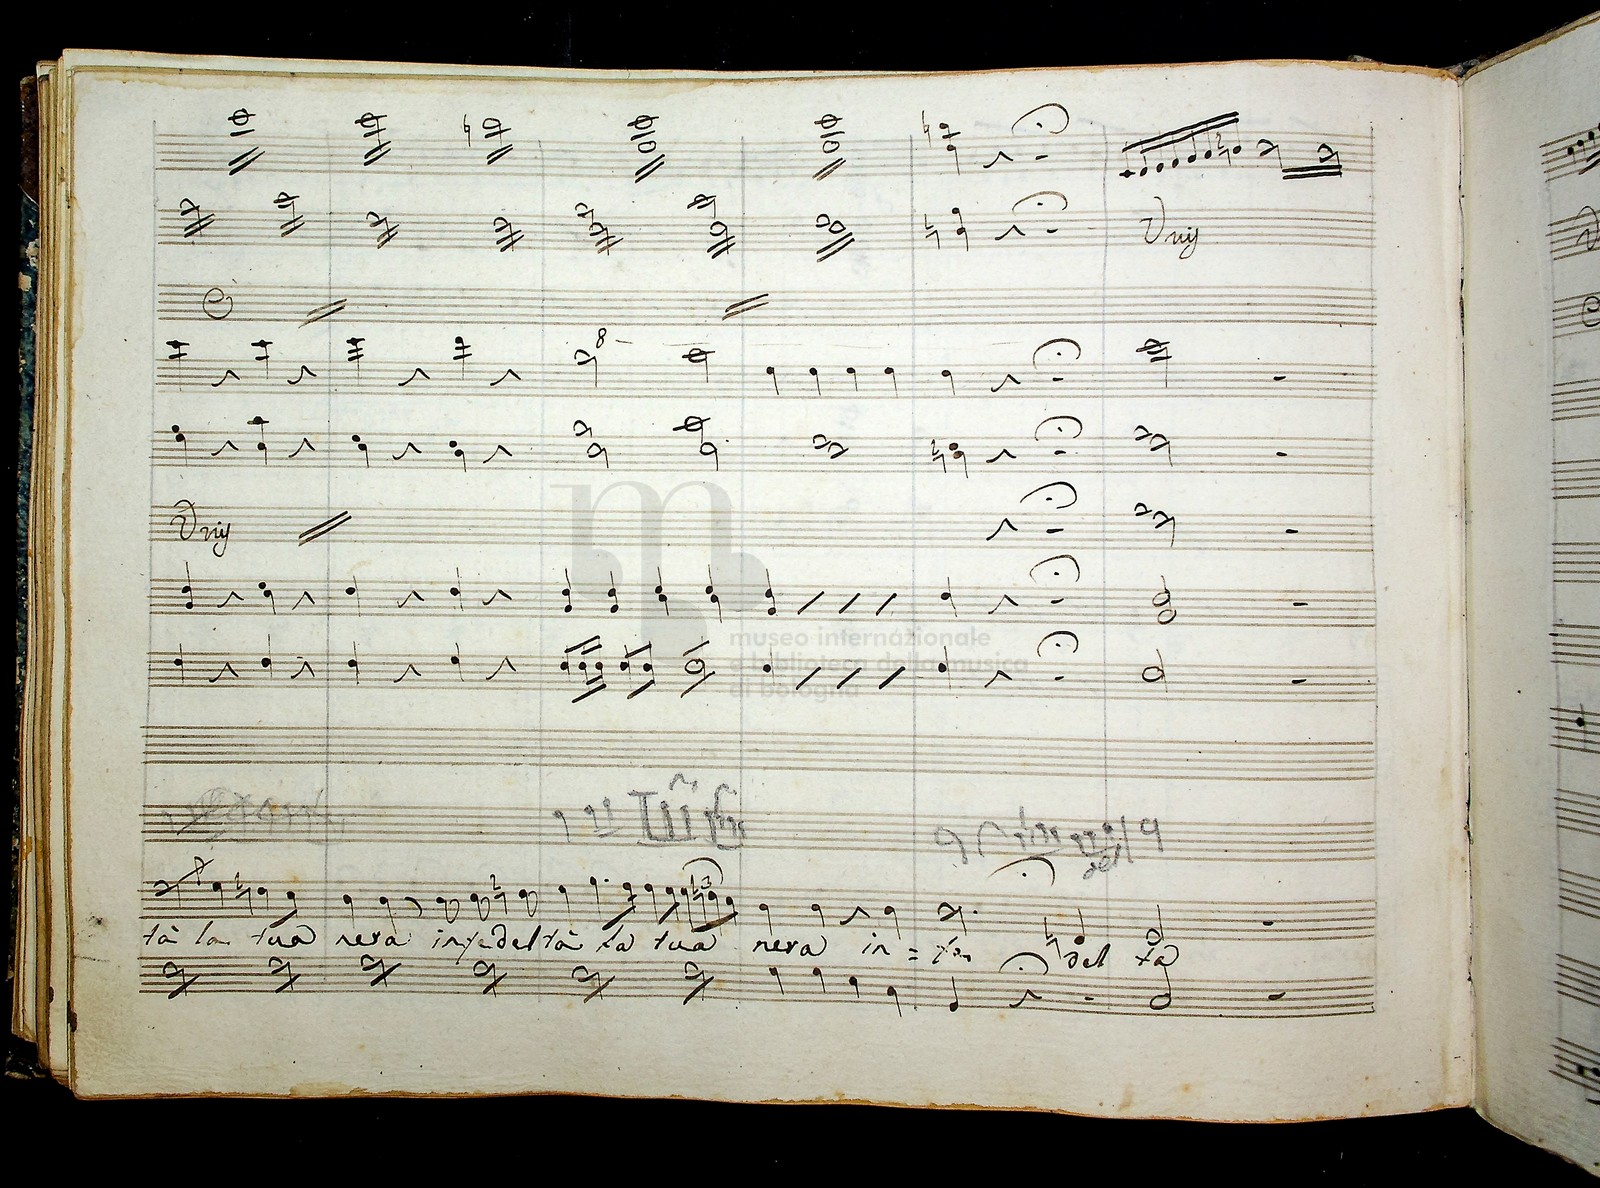 8
Unis
Unis
museo internazionale
e biblioteca della musica
di bologna
tà la tua nera infedeltà la tua nera in = fe del tà